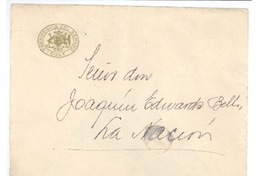 Señor don
Joaquín Edwards Bello
La Nación